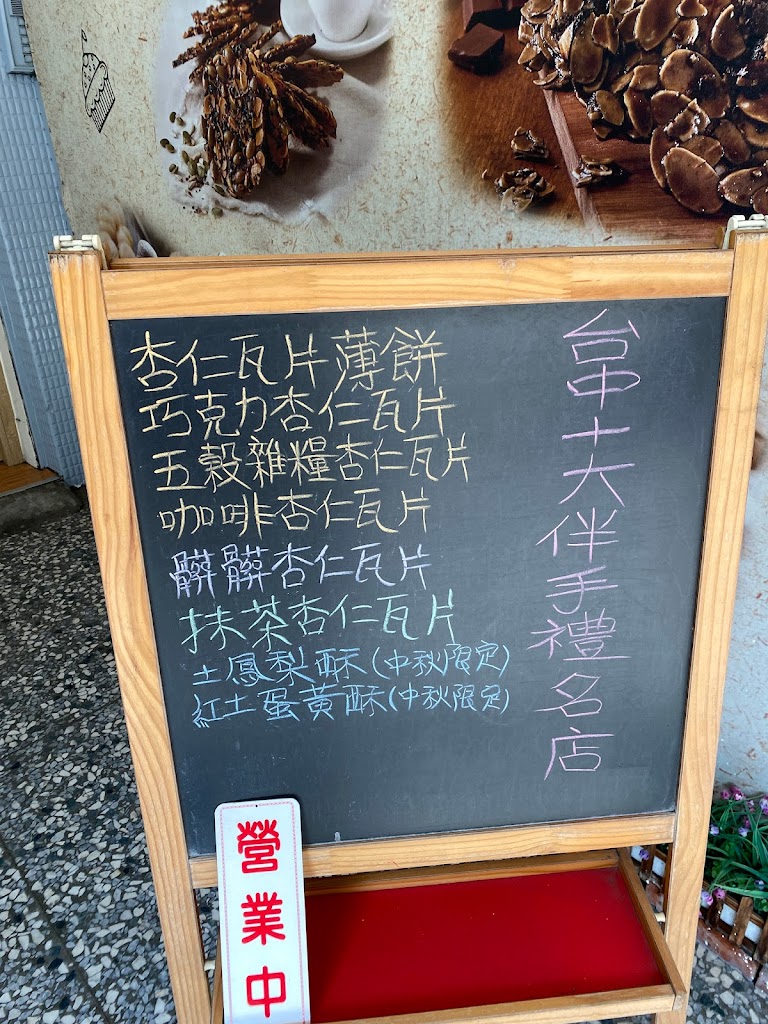 台中十大伴手禮名店
杏仁瓦片薄餅
巧克力杏仁瓦片
五穀雜糧杏仁瓦片
咖啡杏仁瓦片
髒髒杏仁瓦片
抹茶杏仁瓦片
土鳳梨酥(中秋限定)
紅土蛋黃酥(中秋限定)
營業中